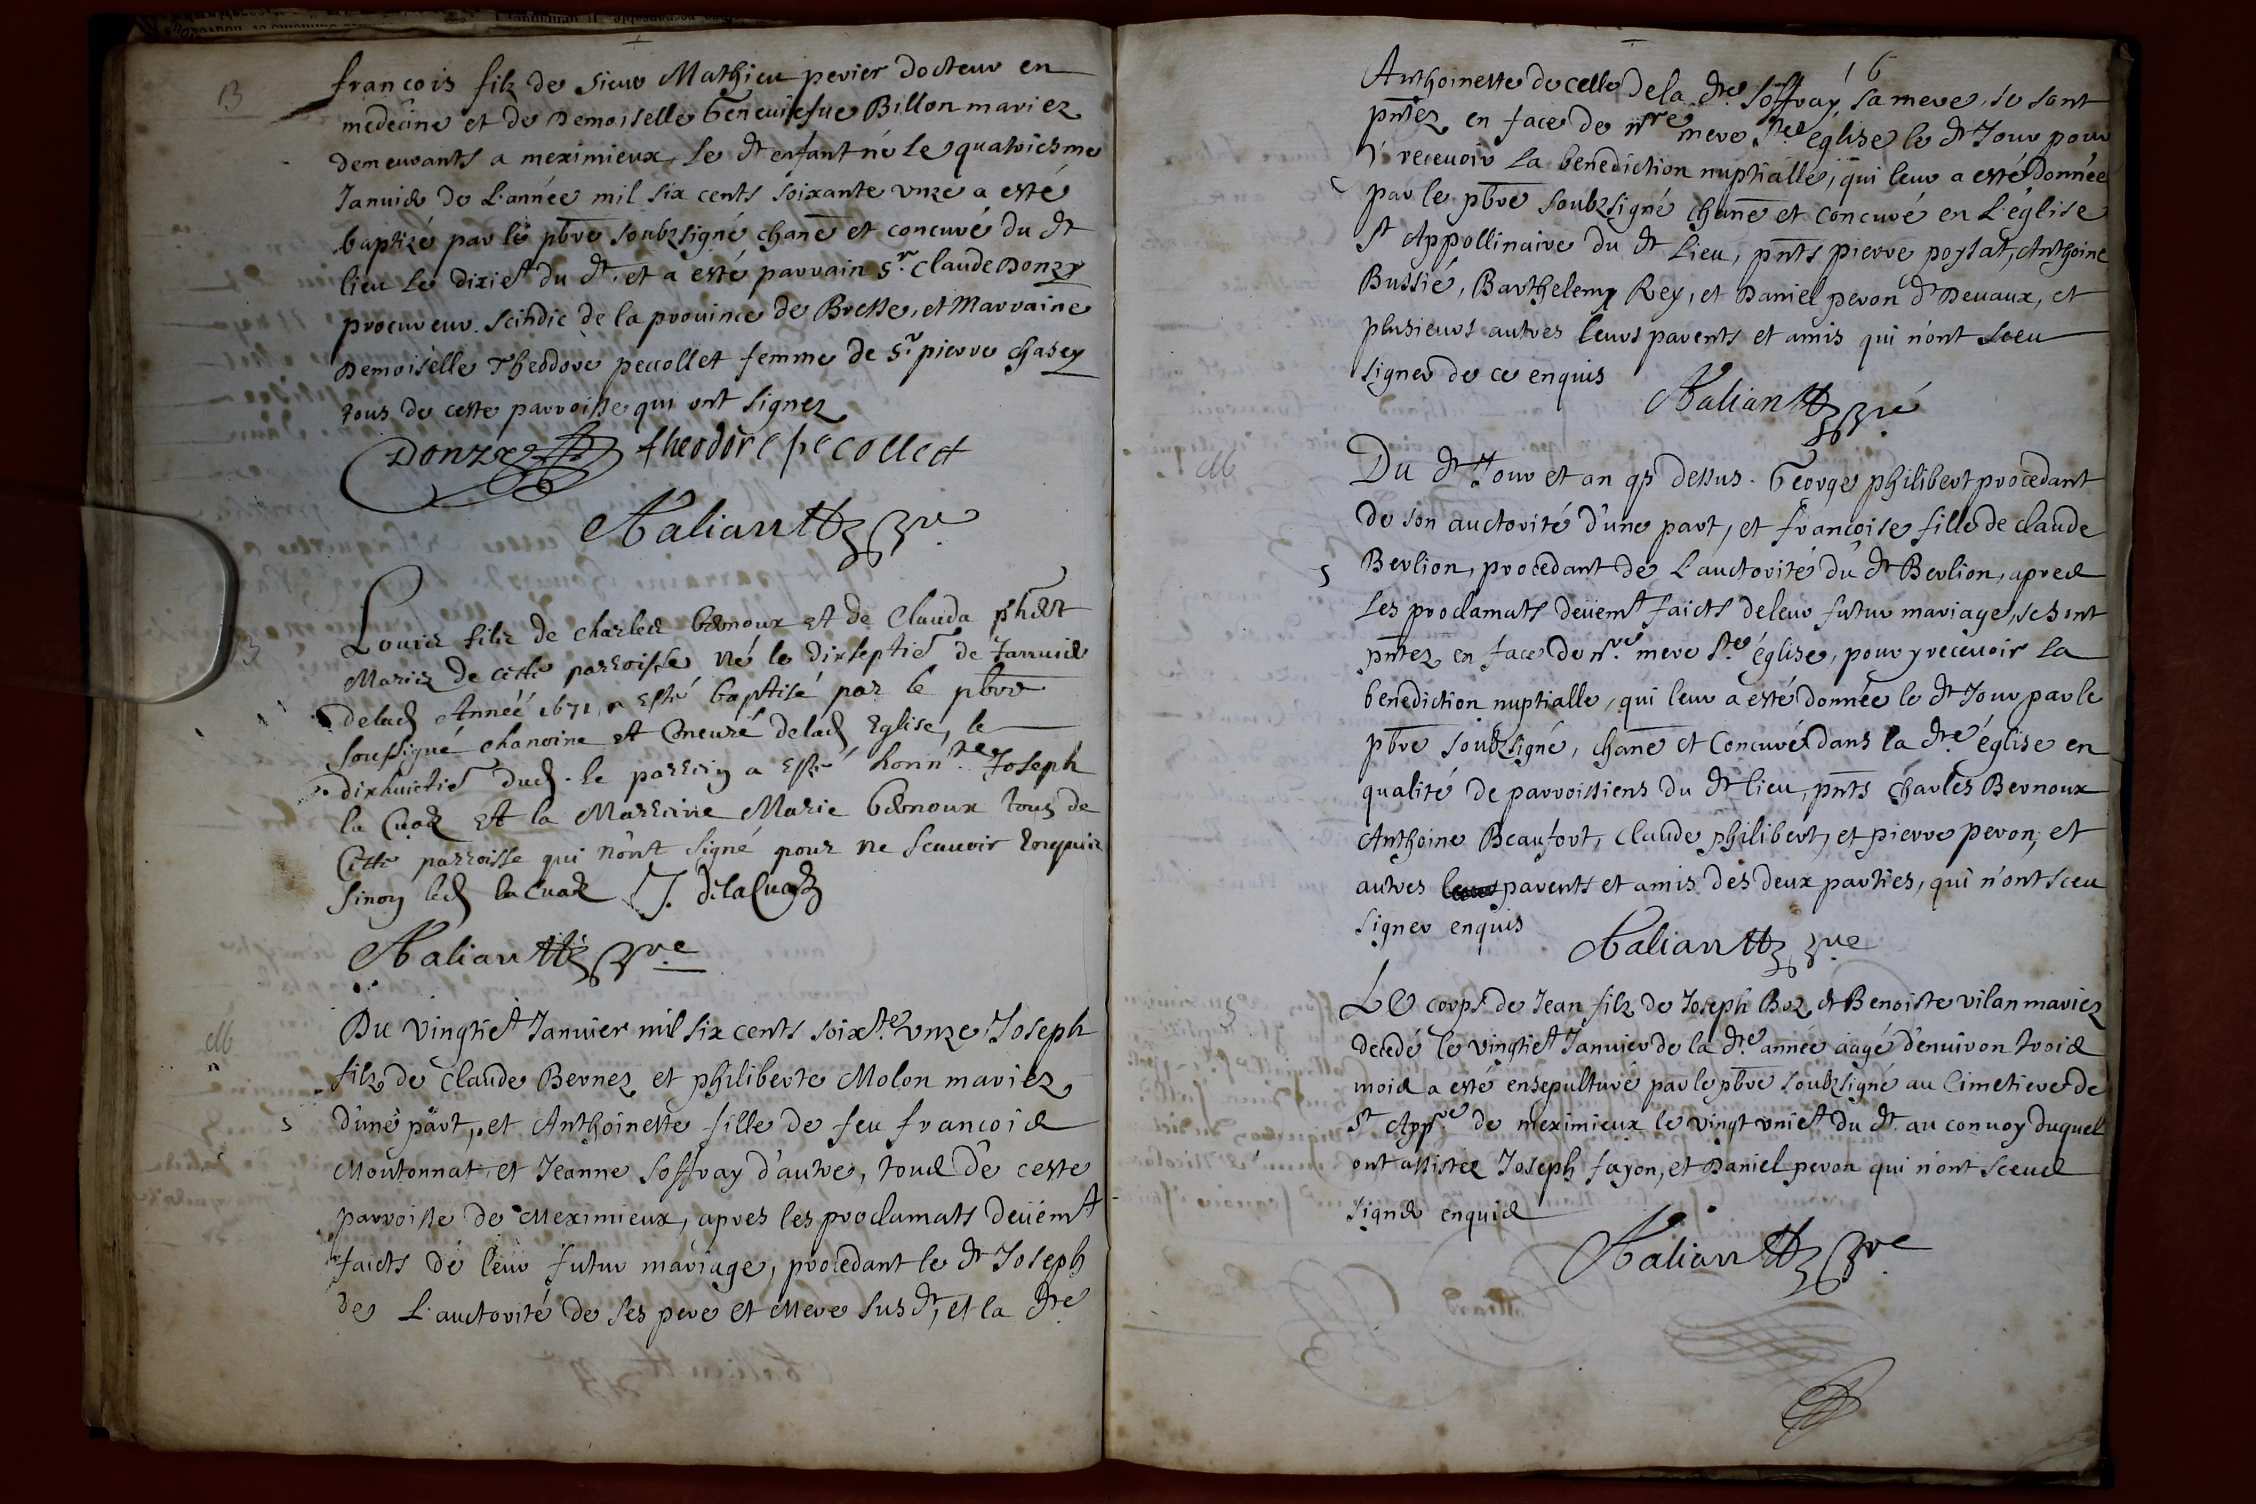 francois filz de sieur Mathieu perier docteur en
medecine et de Demoiselle Geneuiefue Billon mariez
demeurants a meximieux, le dt enfant né le quatriesme
Januier de L'année mil six cents soixante vnze a esté
baptizé par le pbre soubzsigné chane et concuré du dt
lieu le dixiet du dt. et a esté parrain Sr. Claude Donzy
procureur scindic de la prouince de Bresse, et Marraine
Demoiselle Theodore pecollet femme de Sr. pierre chasey
tous de ceste parroisse qui ont signez
Donzy theodore pecollet
Louis filz de Charles Bernoux et de Clauda
Mariez de cette parroisse né le dixseptie de Januier
de lad Année 1671, a esté baptisé par le pbre
soussigné chanoine et Concuré de lad Eglise, le
dixhuictie dud. le parrein a esté honnte Joseph
la Cuaz et la Marreine Marie Bernoux tous de
Cette parroisse qui n'ont signé pour ne scauoir Enquis
sinon led la Cuaz J. DelaCuaz
M
Du vingtiet Januier mil six cents soixte vnze Joseph
filz de Claude Bernez et philiberte Molon mariez
5 d'une part, et Anthoinette fille de feu francois
Moutonnat et Jeanne Soffray d'autre, tous de ceste
parroisse de Meximieux, apres les proclamats deüemt
faicts de leur futur mariage, procedant le dt Joseph
de L'auctorité de ses pere et Mere susdt, et la dte
16
Anthoinette de celle de la dte Soffray sa mere, se sont
pntez en face de nre mere Ste église le dt Jour pour
y receuoir la benediction nuptialle, qui leur a esté donnée
par le pbre soubzsigné chane et concuré en L'église
St Appollinaire du dt Lieu, pnts pierre poysat, Anthoine
Bussié, Barthelemy Rey, et Daniel peron dt Deuaux, et
plusieurs autres leurs parents et amis qui n'ont sceu
signer de ce enquis
M
Du dt Jour et an qs dessus. George philibert procedant
de son auctorité d'une part, et francoise fille de claude
5 Berlion, procedant de L'auctorité du dt Berlion, apres
les proclamats deüemt faicts de leur futur mariage, se sont
pntez en face de nre mere Ste église, pour y receuoir la
benediction nuptialle, qui leur a esté donnée le dt Jour par le
pbre soubzsigné, chane et Concuré dans la dte église en
qualité de parroissiens du dt lieu, pnts Charles Bernoux
Anthoine Beaufort, Claude philibert, et pierre peron, et
autres parents et amis des deux parties, qui n'ont sceu
signer enquis
Le corps de Jean filz de Joseph Boz et Benoiste vilan mariez
decedé le vingtiet Januier de la dte année aagé d'enuiron trois
mois a esté ensepulturé par le pbre soubzsigné au Cimetiere de
St Appre de meximieux le vingt vniet du dt. au conuoy duquel
ont assistez Joseph fayon, et Daniel peron qui n'ont sceus
signer enquis